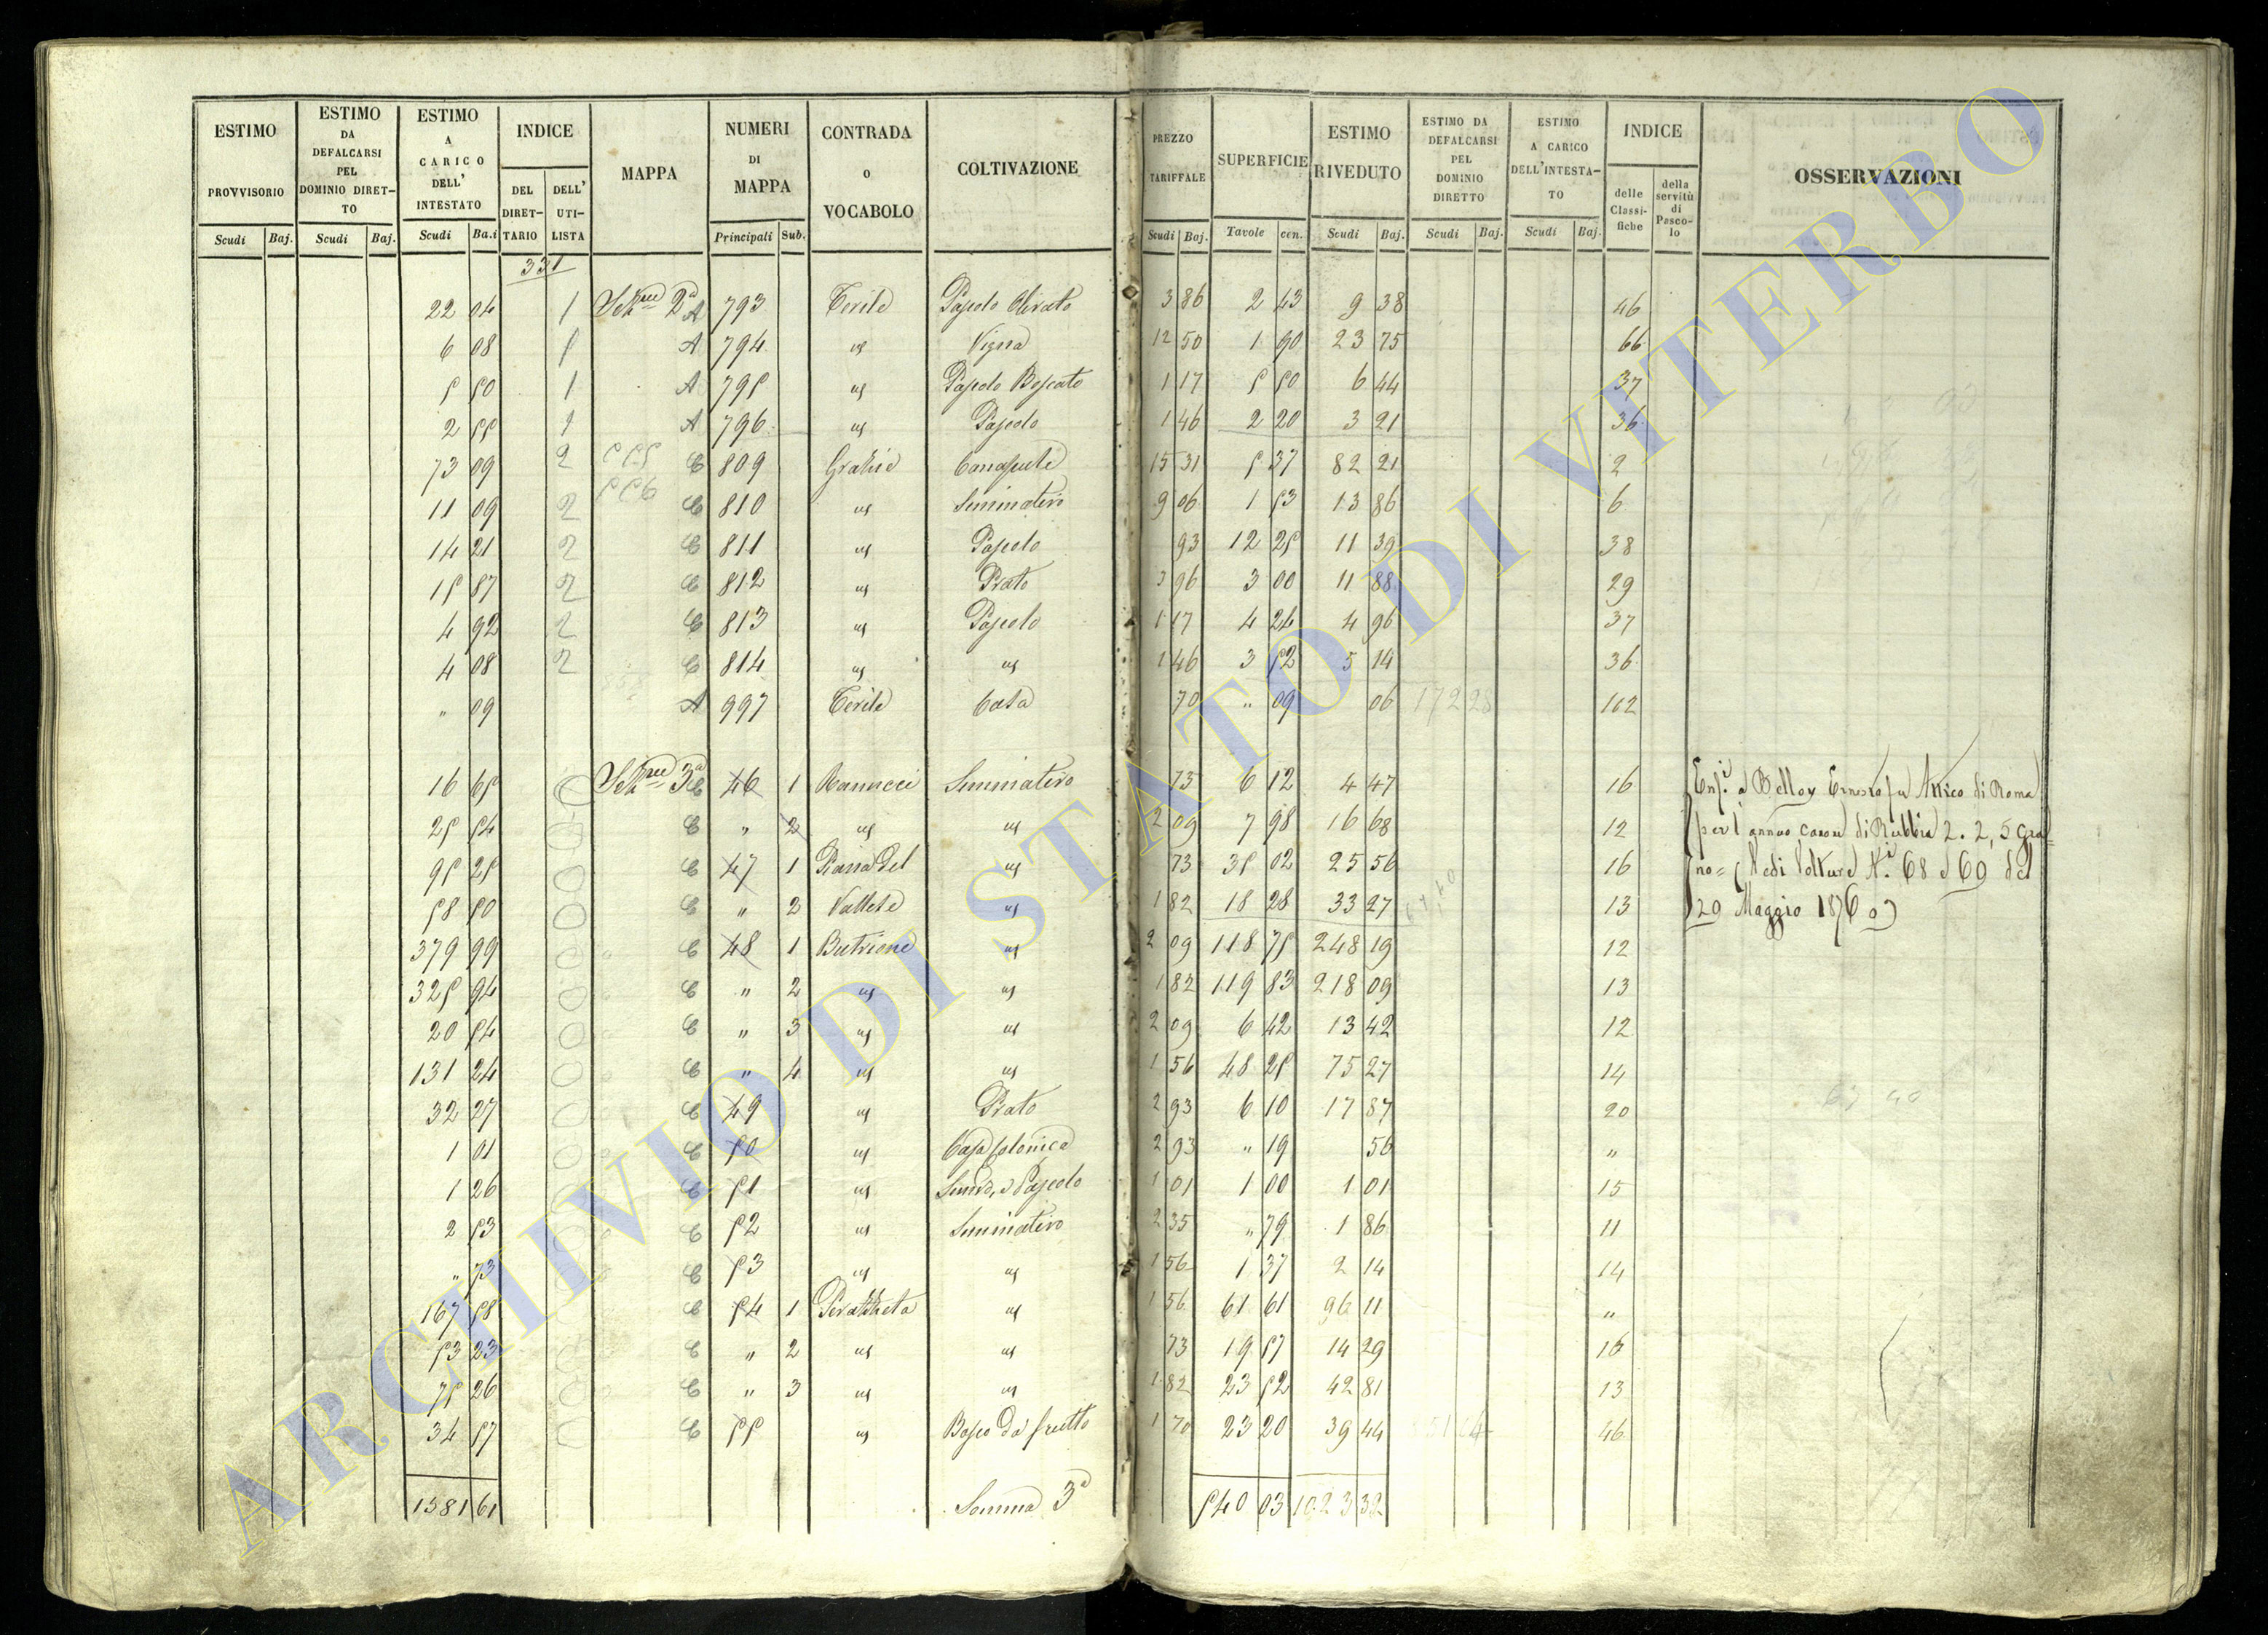 ESTIMO PROVVISORIO Scudi Baj. ESTIMO DA DEFALCARSI PEL DOMINIO DIRETTO Scudi Baj. ESTIMO A CARICO DELL' INTESTATO Scudi Ba.i INDICE DEL DIRETTARIO DELL' UTILISTA MAPPA NUMERI DI MAPPA Principali Sub. CONTRADA O VOCABOLO COLTIVAZIONE PREZZO TARIFFALE Scudi Baj. SUPERFICIE Tavole cen. ESTIMO RIVEDUTO Scudi Baj. ESTIMO DA DEFALCARSI PEL DOMINIO DIRETTO Scudi Baj. ESTIMO A CARICO DELL'INTESTATO Scudi Baj. INDICE delle Classifiche della servitù di Pascolo OSSERVAZIONI
331
22 04 1 2a A 793 Cerile Pascolo Olivato 3 86 2 43 9 38 46
6 08 1 A 794 us Vigna 12 50 1 90 23 75 66
5 50 1 A 795 us Pascolo Boscato 1 17 5 50 6 44 37
2 55 1 A 796 us Pascolo 1 46 2 20 3 21 36
73 09 2 C 809 Grazie Canapule 15 31 5 37 82 21 2
11 09 2 C 810 us Seminativo 9 06 1 53 13 86 6
14 21 2 C 811 us Pascolo 93 12 25 11 39 38
15 87 2 C 812 us Prato 3 96 3 00 11 88 29
4 92 2 C 813 us Pascolo 1 17 4 24 4 96 37
4 08 2 C 814 us us 1 46 3 52 5 14 36
" 09 A 997 Cerile Casa 70 " 09 06 172 28 102
16 65 3a C 46 1 Ranucci Seminativo 73 6 12 4 47 16 Enf.i a Belloy Ernesto fu Arrico di Roma
25 54 C " 2 us us 2 09 7 98 16 68 12 per l'annuo canone di Rubbia 2. 2, 5 Gra=
95 25 C 47 1 Piana del us 73 35 02 25 56 16 no= (Vedi Volture N.i 68 e 69 del
58 50 C " 2 Vallete us 1 82 18 28 33 27 13 20 Maggio 1876
379 99 C 48 1 Butrione us 2 09 118 75 248 19 12
325 94 C " 2 us us 1 82 119 83 218 09 13
20 54 C " 3 us us 2 09 6 42 13 42 12
131 24 C " 4 us us 1 56 48 25 75 27 14
32 27 C 49 us Prato 2 93 6 10 17 87 20
1 01 C 50 us Casa Colonica 2 93 " 19 56 "
1 26 C 51 us Pascolo 1 01 1 00 1 01 15
2 53 C 52 us Seminativo 2 35 " 79 1 86 11
" 73 C 53 us us 1 56 1 37 2 14 14
167 58 C 54 1 us 1 56 61 61 96 11 "
53 23 C " 2 us us 73 19 57 14 29 16
75 26 C " 3 us us 1 82 23 52 42 81 13
34 57 C 55 us Bosco da frutto 1 70 23 20 39 44 46
1581 61 Somma 3a 540 03 1023 32
ARCHIVIO DI STATO DI VITERBO